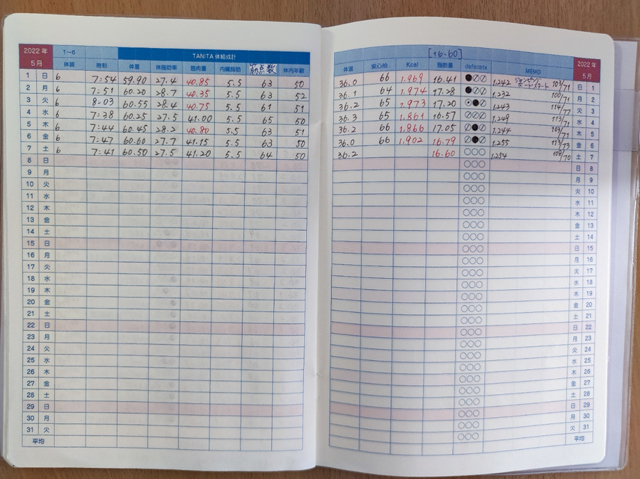 2022年 5月 1~6 TANITA 体組成計
体調 体重 体脂肪率 筋肉量 内臓脂肪 体内年齢
1 日 6 7:54 59.90 27.4 40.85 5.5 63 50
2 月 6 7:51 60.20 28.7 40.35 5.5 63 52
3 火 6 8:03 60.55 28.4 40.75 5.5 61 51
4 水 6 7:38 60.25 27.5 41.00 5.5 65 50
5 木 6 7:44 60.45 28.2 40.80 5.5 63 51
6 金 6 7:47 60.60 27.7 41.15 5.5 63 50
7 土 6 7:41 60.50 27.5 41.20 5.5 64 50
8 日
9 月
10 火
11 水
12 木
13 金
14 土
15 日
16 月
17 火
18 水
19 木
20 金
21 土
22 日
23 月
24 火
25 水
26 木
27 金
28 土
29 日
30 月
31 火
平均
[16-60] 2022年 5月
体温 Kcal 脂肪量 MEMO
36.0 66 1.969 16.41 1.242 日 1
36.1 64 1.974 17.28 1.232 月 2
36.2 65 1.973 17.20 1.243 火 3
36.3 65 1.861 16.57 1.249 水 4
36.2 66 1.866 17.05 1.244 木 5
36.0 66 1.902 16.79 1.255 金 6
36.2 16.60 1.254 土 7
日 8
月 9
火 10
水 11
木 12
金 13
土 14
日 15
月 16
火 17
水 18
木 19
金 20
土 21
日 22
月 23
火 24
水 25
木 26
金 27
土 28
日 29
月 30
火 31
平均